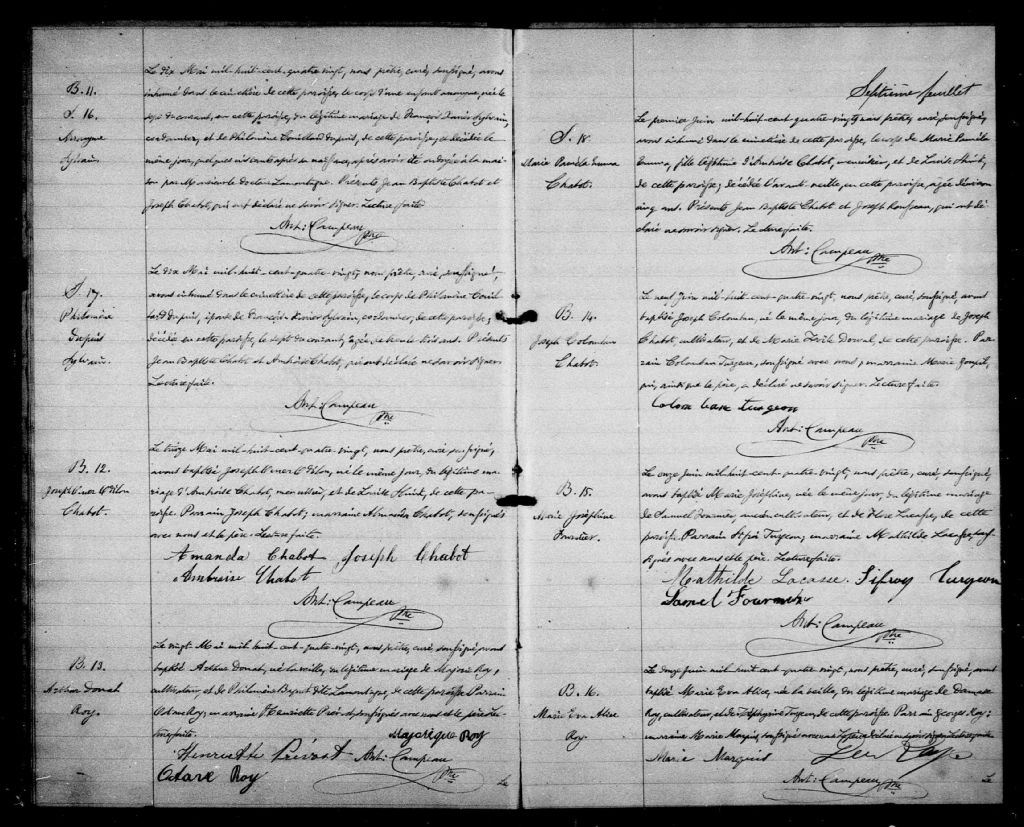 B. 11.
S. 16
Anonyme
Sylvain
Le dix Mai mil-huit-cent-quatre-vingt, nous prêtre, curé, soussigné, avons
inhumé dans le cimetière de cette paroisse, le corps d'une enfant anonyme, née le
sept du courant, en cette paroisse, du légitime mariage de François Xavier Sylvain,
cordonnier, et de Philomène Couillard dupuis, de cette paroisse, et décédée le
même jour, quelques instants après sa naissance, après avoir été ondoyée à la mai-
son par Monsieur le docteur Lamontagne. Présents Jean Baptiste Chabot et
Joseph Chabot, qui ont déclaré ne savoir signer. Lecture faite.
Ant: Campeau Ptre
S. 17.
Philomène
Dupuis
Sylvain.
Le dix Mai mil-huit-cent-quatre-vingt, nous prêtre, curé, soussigné,
avons inhumé dans le cimetière de cette paroisse, le corps de Philomène Couil-
lard dupuis, épouse de François-Xavier Sylvain, cordonnier, de cette paroisse,
décédée en cette paroisse, le sept du courant, âgée de trente trois ans. Présents
Jean Baptiste Chabot et Ambroise Chabot, qui ont déclaré ne savoir signer.
Lecture faite.
Ant: Campeau Ptre
B. 12.
Joseph Omer
Chabot.
Le treize Mai mil-huit-cent-quatre-vingt, nous prêtre, curé soussigné,
avons baptisé Joseph Omer, né le même jour, du légitime ma-
riage d'Ambroise Chabot, menuisier, et de Louise, de cette pa-
roisse. Parrain Joseph Chabot; marraine Amanda Chabot, soussignés
avec nous et le père. Lecture faite.
Amanda Chabot Joseph Chabot
Ambroise Chabot
Ant: Campeau Ptre
B. 13.
Arthur Donat
Roy.
Le vingt Mai mil huit-cent-quatre-vingt, nous prêtre, curé soussigné, avons
baptisé Arthur Donat, né la veille, du légitime mariage de Majoric Roy,
cultivateur, et de Philomène dit Lamontagne, de cette paroisse. Parrain
Octave Roy; marraine Henriette, soussignés avec nous et le père. Lec-
ture faite. Majorique Roy
Henriette Prévost Ant: Campeau Ptre
Octave Roy
Le
Septième feuillet
S. 18.
Marie Paméla Emma
Chabot.
Le premier Juin mil-huit-cent-quatre-vingt, nous prêtre, curé, soussigné,
avons inhumé dans le cimetière de cette paroisse, le corps de Marie Paméla
Emma, fille légitime d'Ambroise Chabot, menuisier, et de Louise,
de cette paroisse; décédée l'avant-veille, en cette paroisse, âgée d'environ
cinq ans. Présents Jean Baptiste Chabot et Joseph Rousseau, qui ont dé-
claré ne savoir signer. Lecture faite.
Ant: Campeau Ptre
B. 14.
Joseph Colomban
Chabot.
Le neuf Juin mil-huit-cent-quatre-vingt, nous prêtre, curé, soussigné, avons
baptisé Joseph Colomban, né le même jour, du légitime mariage de Joseph
Chabot, cultivateur, et de Marie, de cette paroisse. Par-
rain Colomban Turgeon, soussigné avec nous; marraine Marie,
qui, ainsi que le père, a déclaré ne savoir signer. Lecture faite.
turgeon
Ant: Campeau Ptre
B. 15.
Marie Joséphine
Fournier.
Le onze Juin mil-huit-cent-quatre-vingt, nous prêtre, curé, soussigné,
avons baptisé Marie Joséphine, née le même jour, du légitime mariage
de Samuel Fournier, cultivateur, et de Lacasse, de cette
paroisse. Parrain Turgeon; marraine Mathilde Lacasse, sous-
signés avec nous et le père. Lecture faite.
Mathilde Lacasse. Sifroy Turgeon
Fournier
Ant: Campeau Ptre
B. 16.
Marie Eva Alice
Roy.
Le douze Juin mil-huit-cent-quatre-vingt, nous prêtre, curé, soussigné, avons
baptisé Marie Eva Alice, née la veille, du légitime mariage de Damase
Roy, cultivateur, et de Zéphyrine Turgeon, de cette paroisse. Parrain Georges Roy;
marraine Marie Marquis, soussignés avec nous. Lecture faite
Marie Marquis Geo Roy
Ant: Campeau Ptre
Le